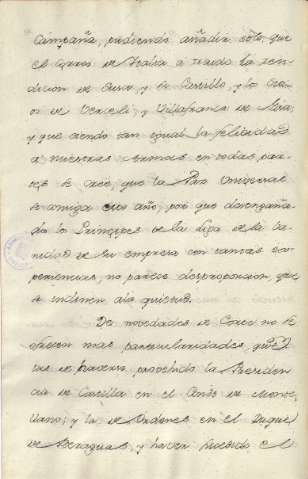 Campaña, pudiendo añadir solo, que
el Correo de Italia a traido la ren-
dicion de Aura, y de Castillo, y lo
de Verceli, y Villafranca de Niza,
y que siendo tan igual la felicidad
a nuestras armas en todas par-
tes se cree, que la Paz Universal
se consiga este año, por que desengaña-
do los Principes de la Liga de la Va-
nidad de su empresa con tantas ex-
periencias, no parece desproporcion, que
se inclinen a la quietud.
De novedades de Corte no se
ofrecen mas particularidades, que
de haverse provehido la Presiden-
cia de Castilla en el Conde de Monte-
llano; y la de Ordenes en el Duque
de Veraguas, y haver recivido el